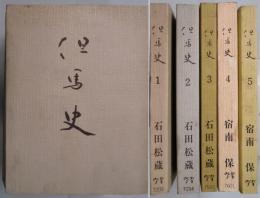 但馬史
但馬史
1
石田松蔵
但馬史
2
石田松蔵
但馬史
3
石田松蔵
但馬史
4
宿南保
但馬史
5
宿南保